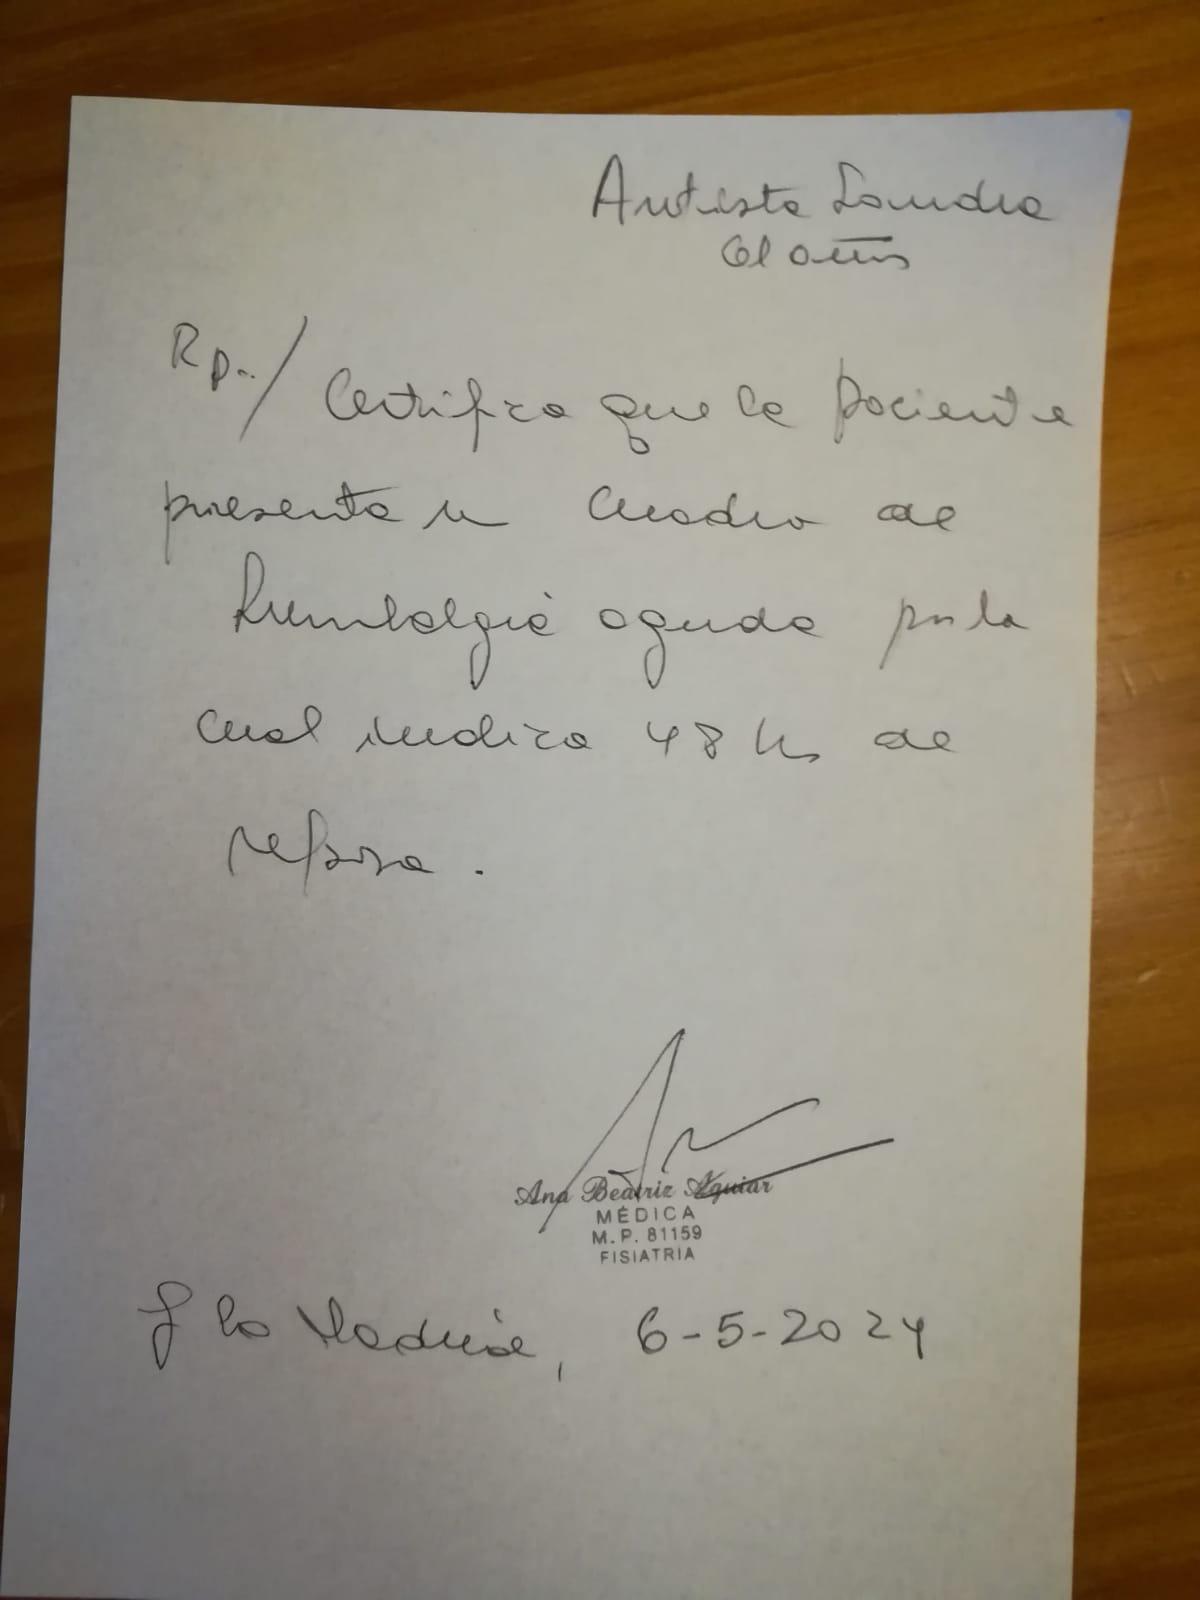 Antista Sandra
Rp../ Certifico que la paciente
presenta un cuadro de
lumbalgia aguda por la
cual indico 48 hs de
reposo.
Ana Beatriz Aguiar
MÉDICA
M.P. 81159
FISIATRIA
6-5-2024